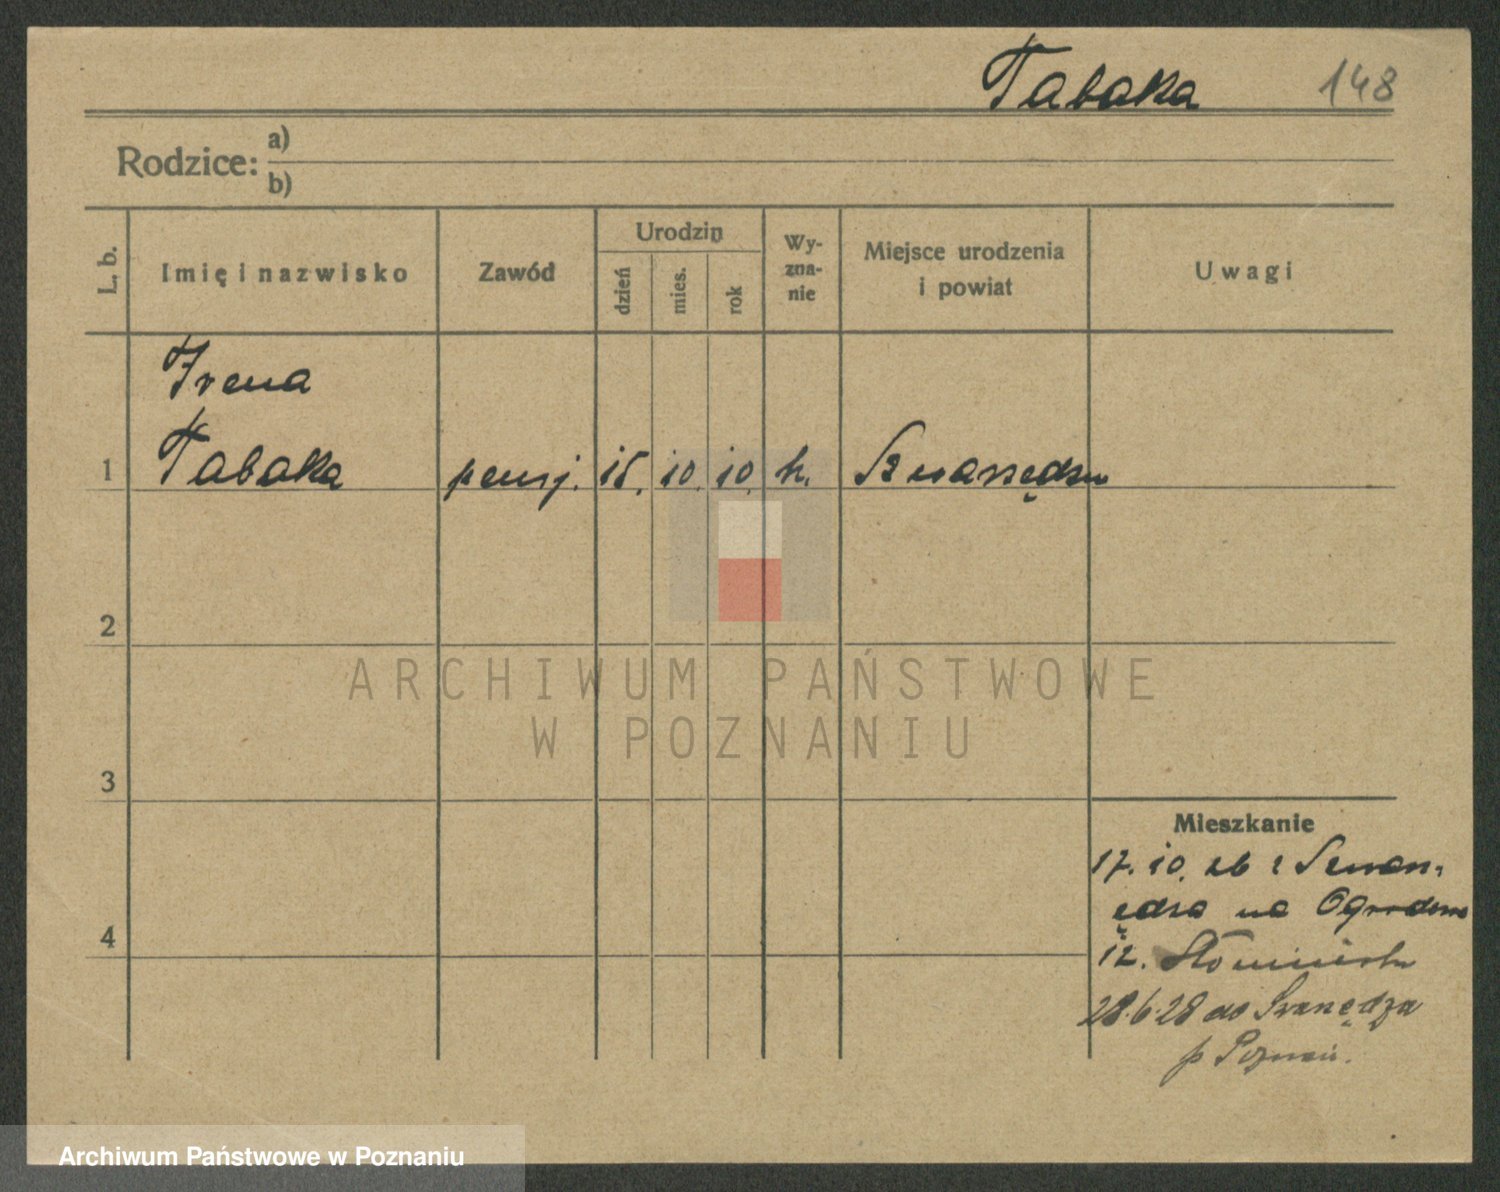 Tabaka 148
Rodzice: a)
b)
L. b. Imię i nazwisko Zawód Urodzin dzień mies. rok Wy-
zna-
nie Miejsce urodzenia
i powiat Uwagi
Irena
1 Tabaka pensj. 15. 10. 10. k.
2
3
4
ARCHIWUM PAŃSTWOWE
W POZNANIU
Mieszkanie
17. 10. 26 z
na
12.
28.6.28 do
p Poznań.
Archiwum Państwowe w Poznaniu